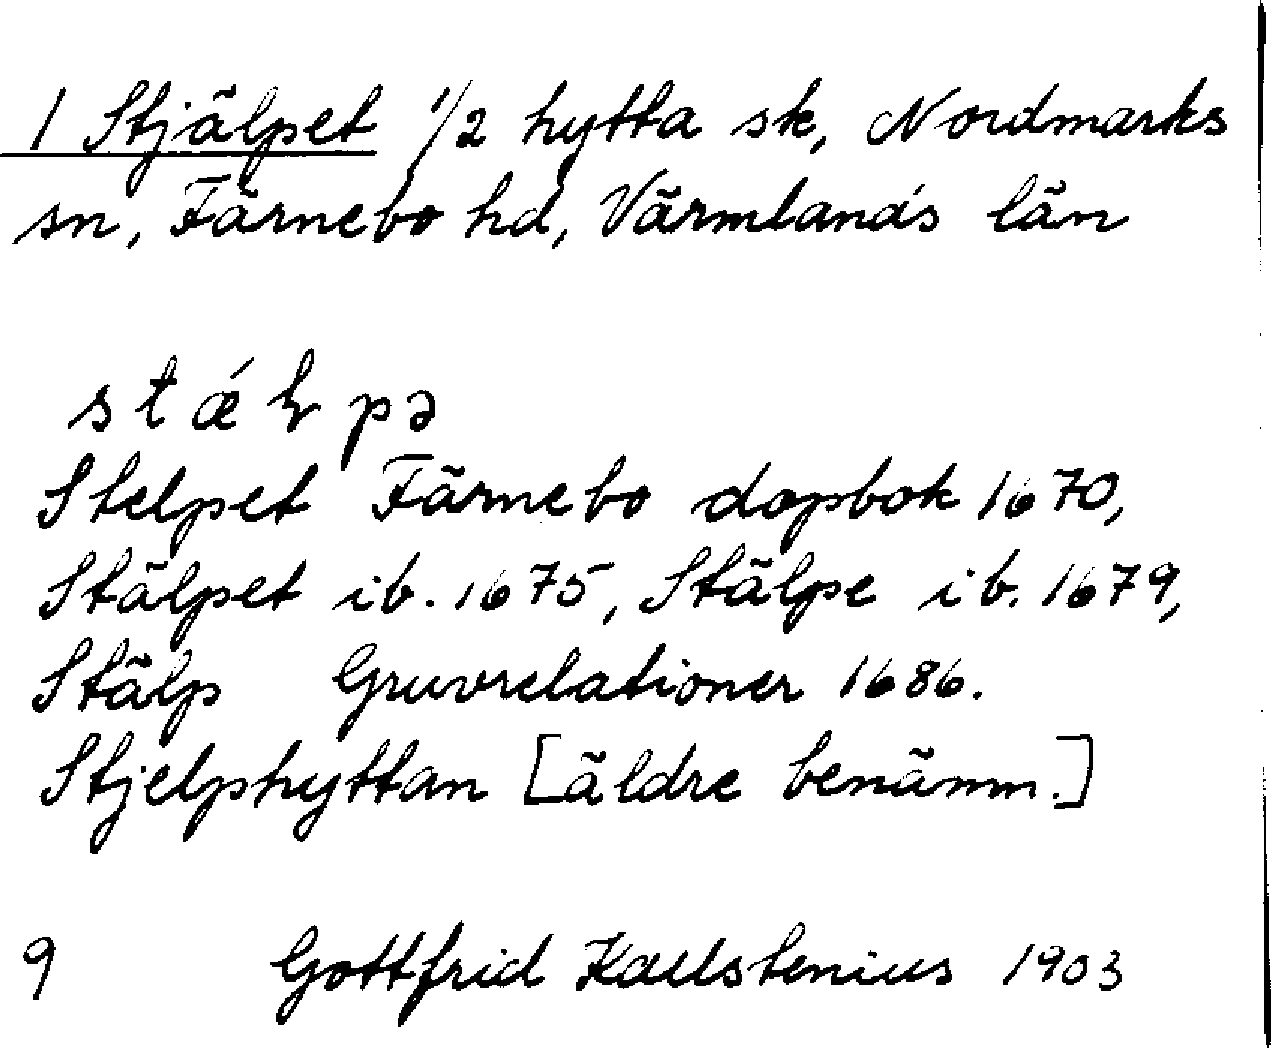 1 Stjälpet 1/2 hytta sk, Nordmarks
sn, Färnebo hd, Värmlands län
stǽlpə
Stelpet Färnebo dopbok 1670,
Stälpet ib. 1675, Stälpe ib. 1679,
Stälp Gruvrelationer 1686.
Stjelphyttan [äldre benämn.]
9 Gottfrid Kallstenius 1903